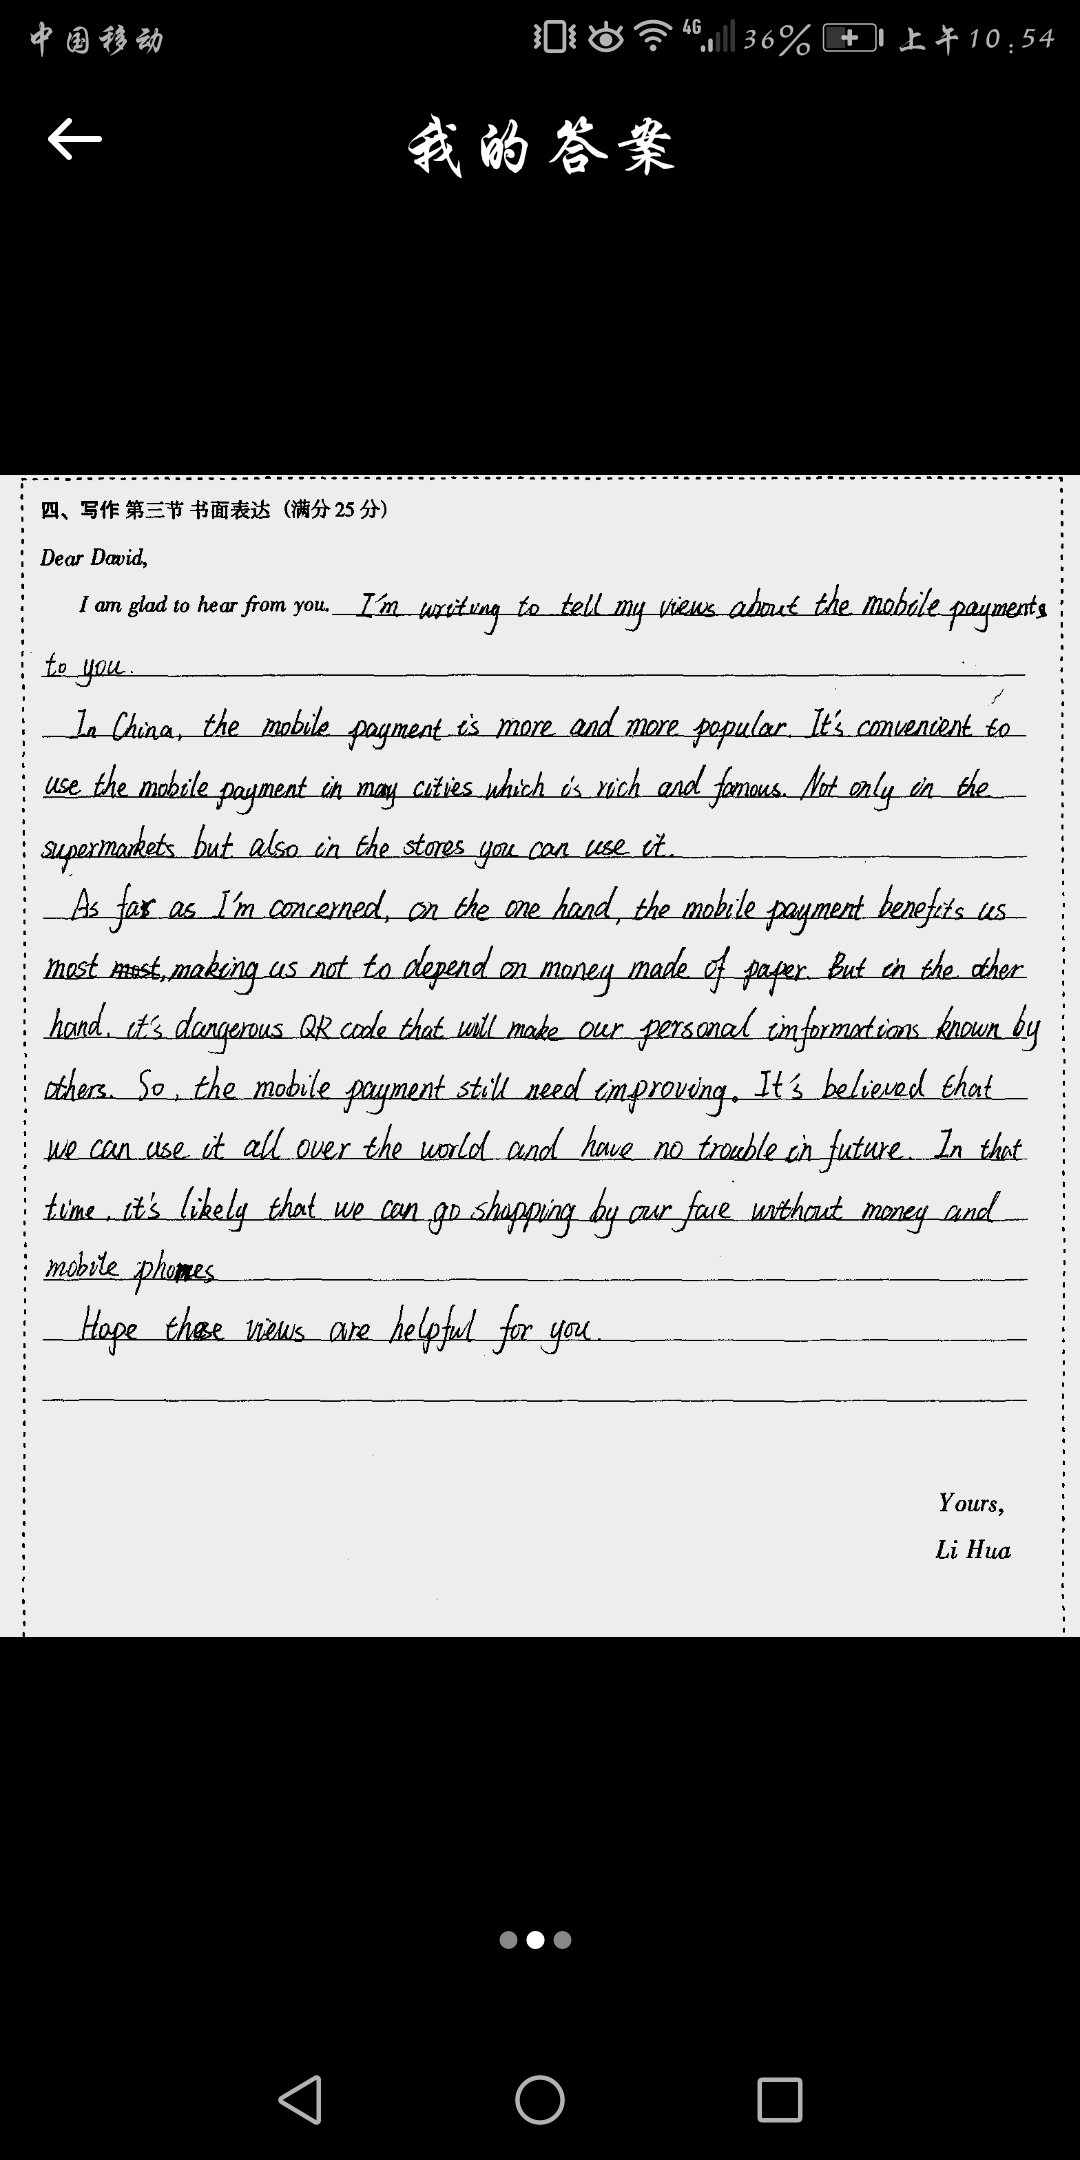 中国移动 4G 36% 上午10:54
我的答案
四、写作 第三节 书面表达（满分 25 分）
Dear David,
I am glad to hear from you. I'm writing to tell my views about the mobile payments
to you.
In China, the mobile payment is more and more popular. It's convenient to
use the mobile payment in may cities which is rich and famous. Not only in the
supermarkets but also in the stores you can use it.
As far as I'm concerned, on the one hand, the mobile payment benefits us
most most, making us not to depend on money made of paper. But in the other
hand. it's dangerous QR code that will make our personal imformations known by
others. So, the mobile payment still need improving. It's believed that
we can use it all over the world and have no trouble in future. In that
time, it's likely that we can go shopping by our face without money and
mobile phones
Hope these views are helpful for you.
Yours,
Li Hua